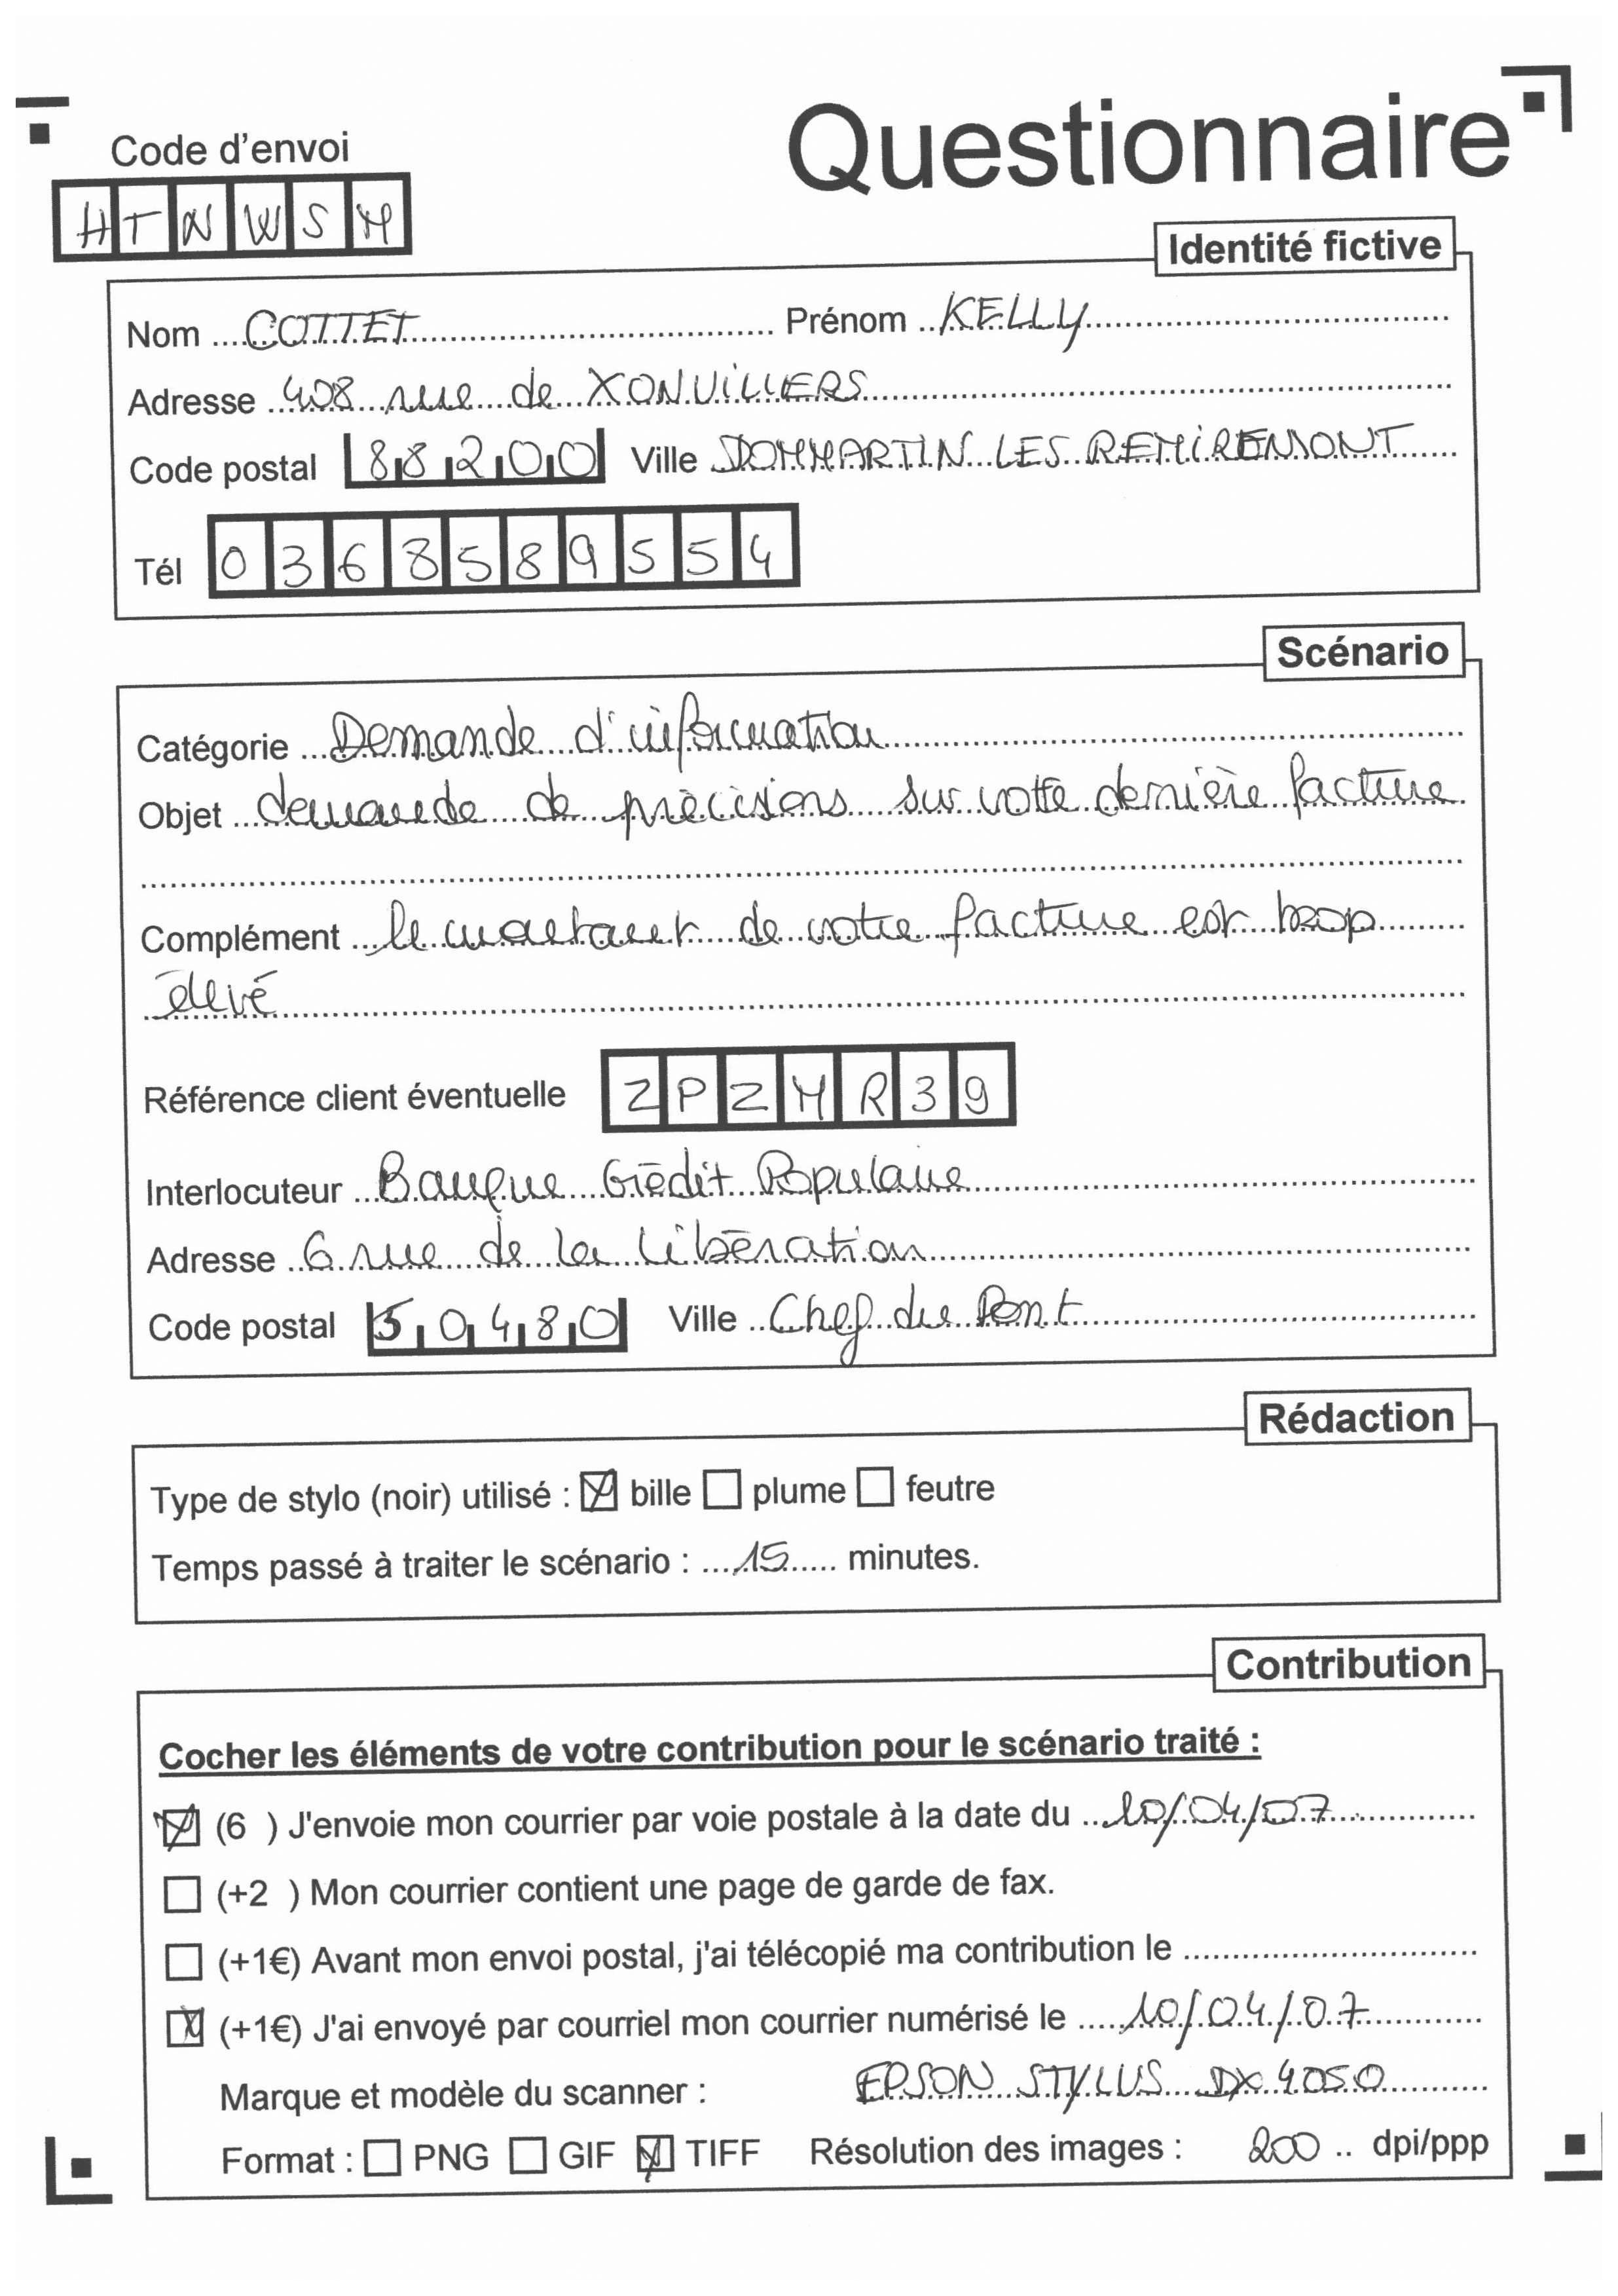 Questionnaire
Code d'envoi
HTNWSM
Identité fictive
Nom COTTET Prénom KELLY
Adresse 408 rue de XONVILLERS
Code postal 88200 Ville DOMMARTIN LES REMIREMONT
Tél 0368589554
Scénario
Catégorie Demande d'information
Objet demande de précisions sur votre dernière facture
Complément le montant de votre facture est trop
élevé
Référence client éventuelle ZPZMR39
Interlocuteur Banque Crédit Populaire
Adresse 6 rue de la libération
Code postal 50480 Ville Chef du Pont
Rédaction
Type de stylo (noir) utilisé : bille plume feutre
Temps passé à traiter le scénario : 15 minutes.
Contribution
Cocher les éléments de votre contribution pour le scénario traité :
(6 ) J'envoie mon courrier par voie postale à la date du 10/04/07
(+2 ) Mon courrier contient une page de garde de fax.
(+1€) Avant mon envoi postal, j'ai télécopié ma contribution le
(+1€) J'ai envoyé par courriel mon courrier numérisé le 10/04/07
Marque et modèle du scanner : EPSON STYLUS DX 4050
Format : PNG GIF TIFF Résolution des images : 200 dpi/ppp